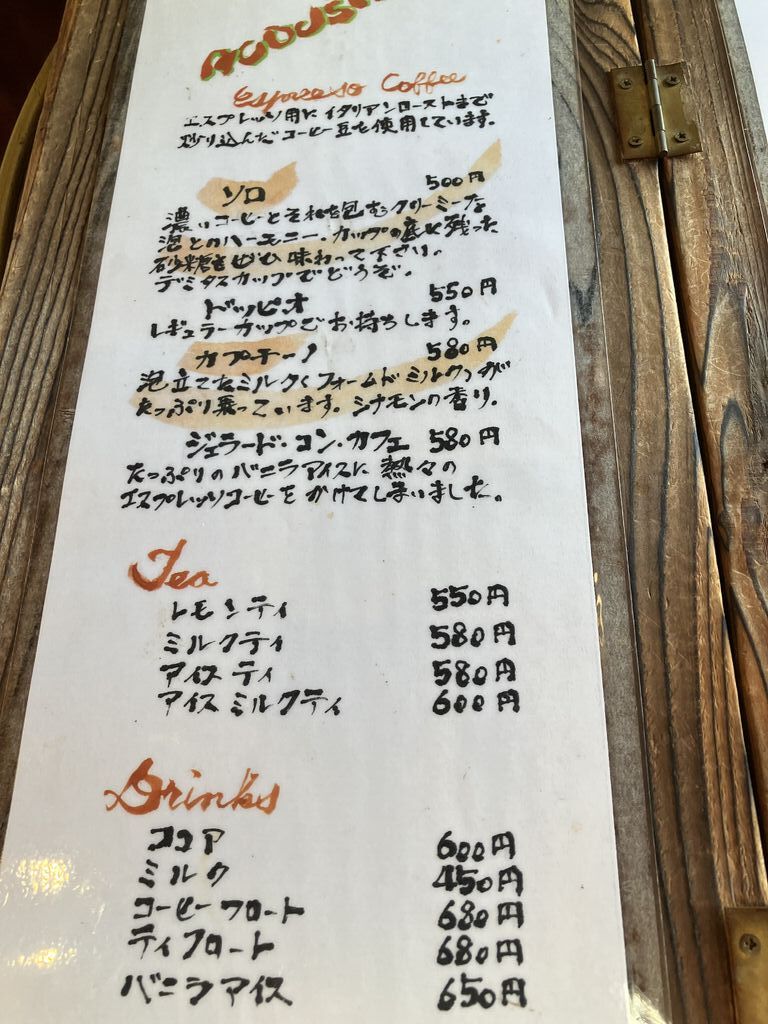 Espresso Coffee
エスプレッソ用にイタリアンローストまで
炒り込んだコーヒー豆を使用しています。
ソロ 500円
濃いコーヒーとそれを包むクリーミーな
泡とのハーモニー・カップの底に残った
砂糖もぜひ味わって下さい。
デミタスカップでどうぞ。
ドッピオ 550円
レギュラーカップでお持ちします。
カプチーノ 580円
泡立てたミルク(フォームドミルク)が
たっぷり乗っています。シナモンの香り。
ジェラード・コン・カフェ 580円
たっぷりのバニラアイスに熱々の
エスプレッソコーヒーをかけてしまいました。
Tea
レモンティ 550円
ミルクティ 580円
アイスティ 580円
アイスミルクティ 600円
Drinks
ココア 600円
ミルク 450円
コーヒーフロート 680円
ティフロート 680円
バニラアイス 650円